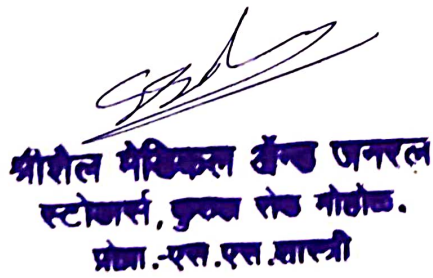 श्रीशैल मेडिकल अ‍ॅन्ड जनरल
स्टोअर्स, कुरुल रोड मोहोळ.
प्रोप्रा.-एस.एस.शास्त्री